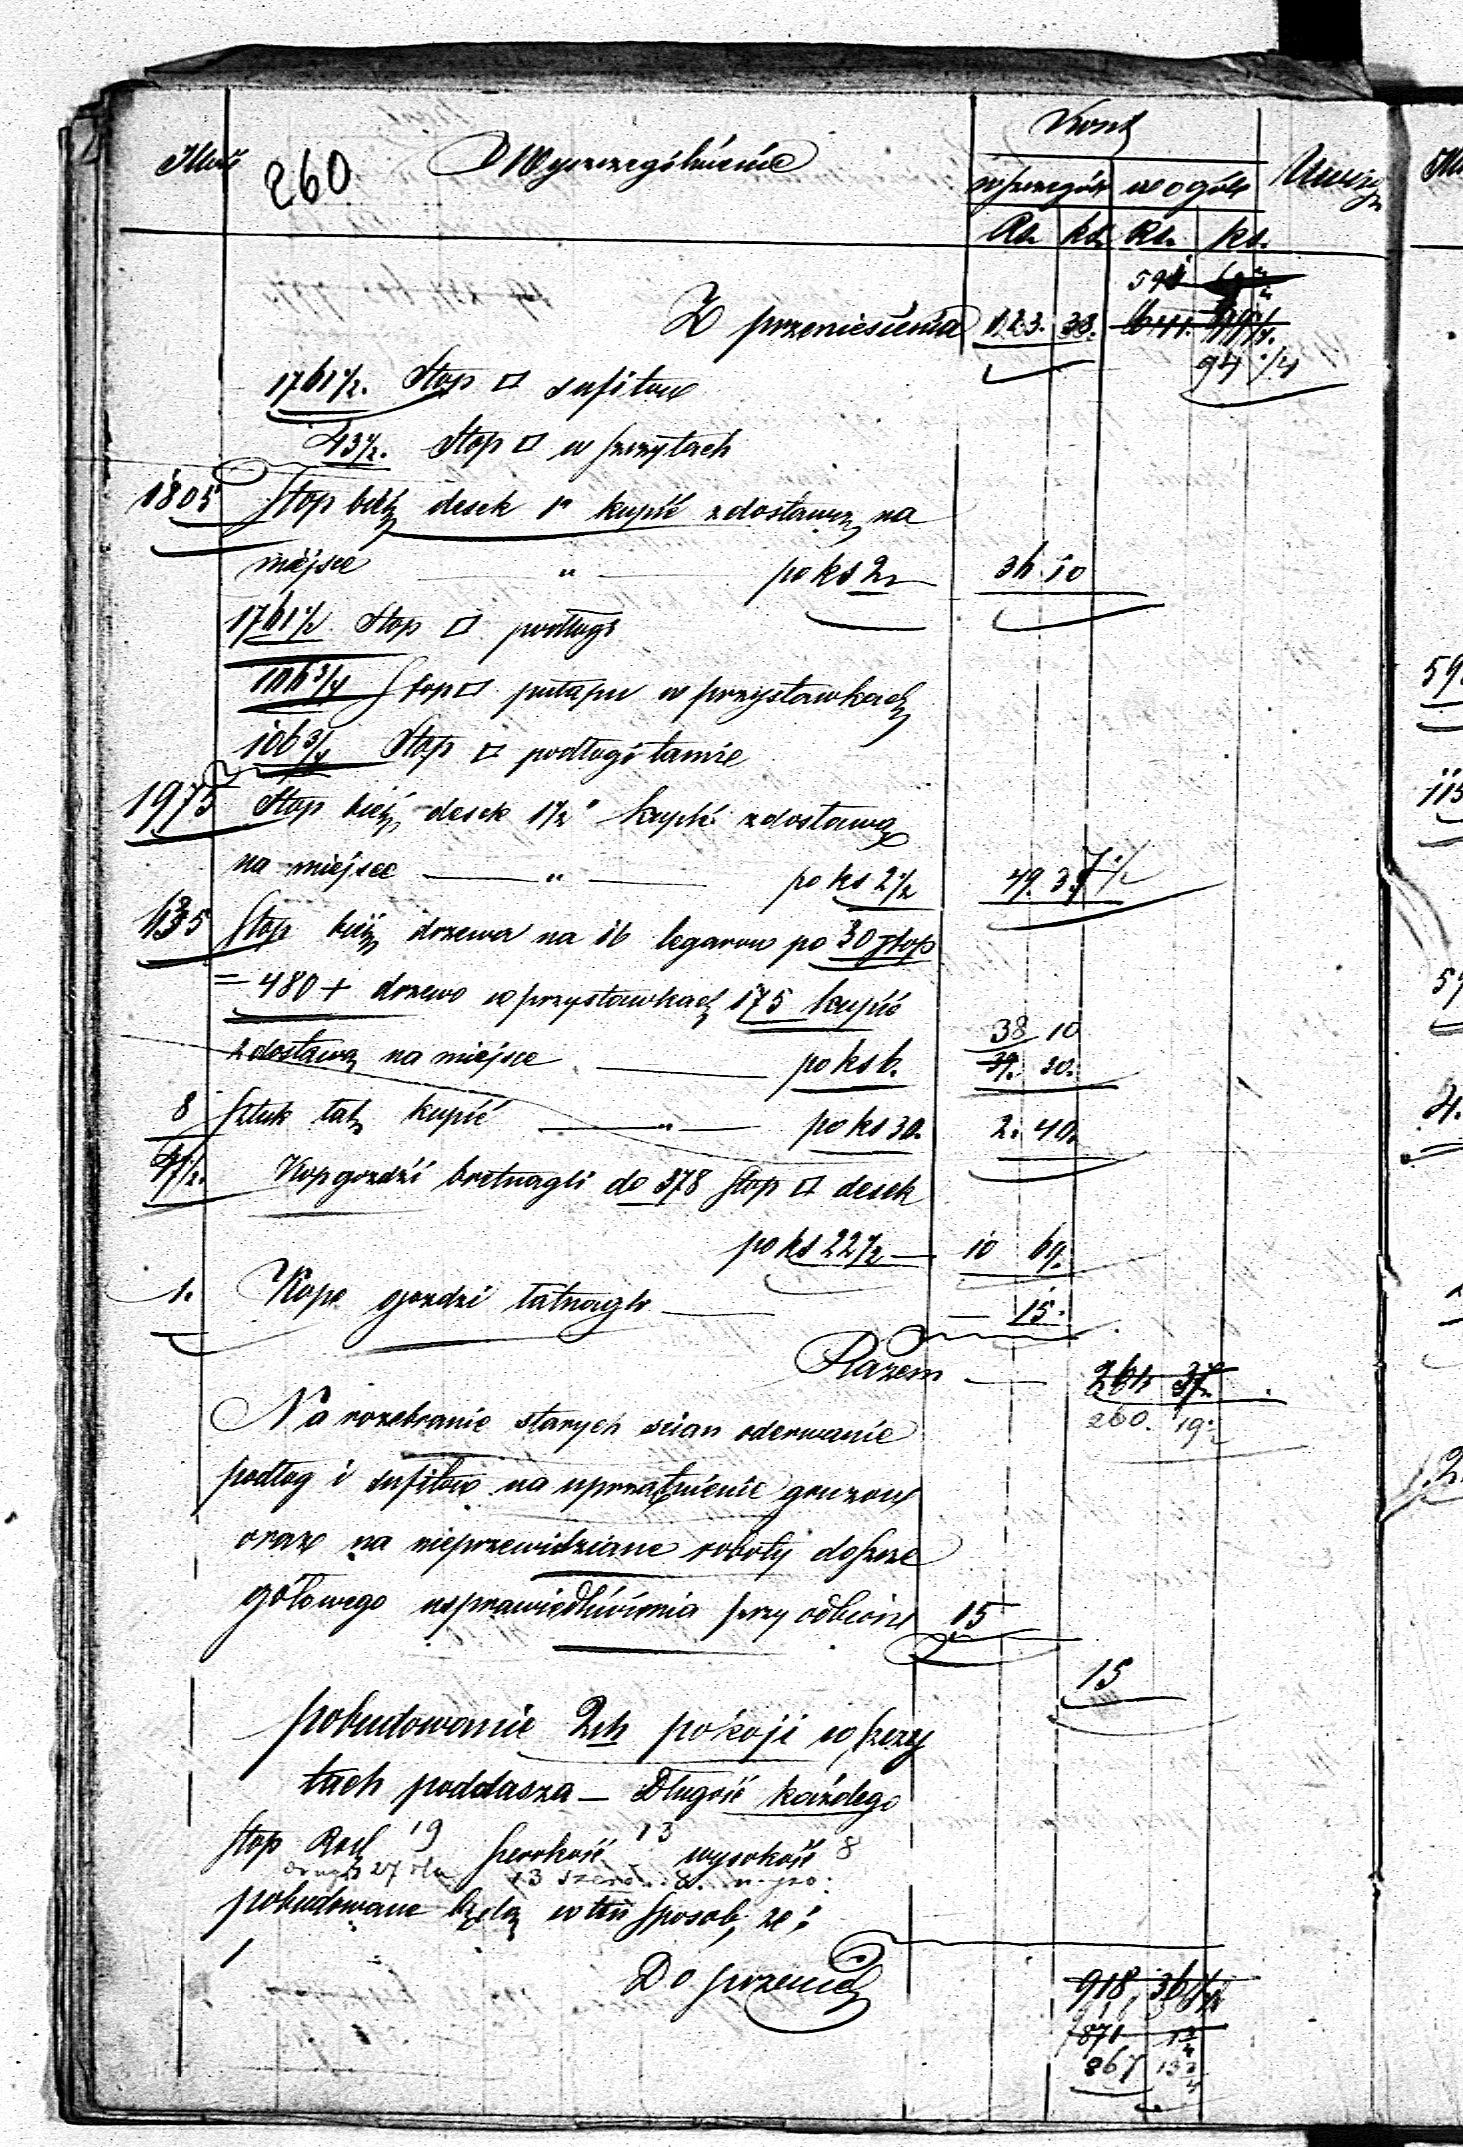 Ilość 260 Wyszczególnienie Koszt
w szczególe w ogóle Uwagi
Rs. ks. Rs. ks.
Z przeniesienia 123. 38.
94 1/4
1761 1/2. Stop □ sufitow
43 1/2. Stop □ w szczytach
1805 Stop bież desek 1" kupić z dostawą na
miejsce — " — po ks 2 36. 10
1761 1/2 Stop □ podłogi
106 3/4 Stop □ pułapu w przystawkach
106 3/4 Stop □ podłogi tamże
1975 Stop bież desek 1 1/2" kupić z dostawą
na miejsce — " — po ks 2 1/2 49. 37 1/2
635 Stop bież drzewa na 16 legarow po 30 stop
= 480 + drzewo w przystawkach 175 kupić
38 10
z dostawą na miejsce — po ks 6. 39. 30.
8 sztuk łat kupić — " — po ks 30. 2. 40.
Kop gozdzi bretnagli do 378 Stop □ desek
po ks 22 1/2 — 10 69.
1. Kopa gozdzi łatnagli — — 15.
Razem — 264 37
260. 19
Na rozebranie starych scian oderwanie
podłog i sufitow na uprzatnienie gruzow
oraz na nieprzewidziane roboty do szcze
gółowego usprawiedliwienia przy odbiorze 15
15
pobudowanie 2ch pokoji w szczy
tach poddasza — Długość każdego
stop 19 szerokość 13 wysokość 8
pobudowane będą w ten sposob, że:
Do przenie
918 36
871
867 13 3/4